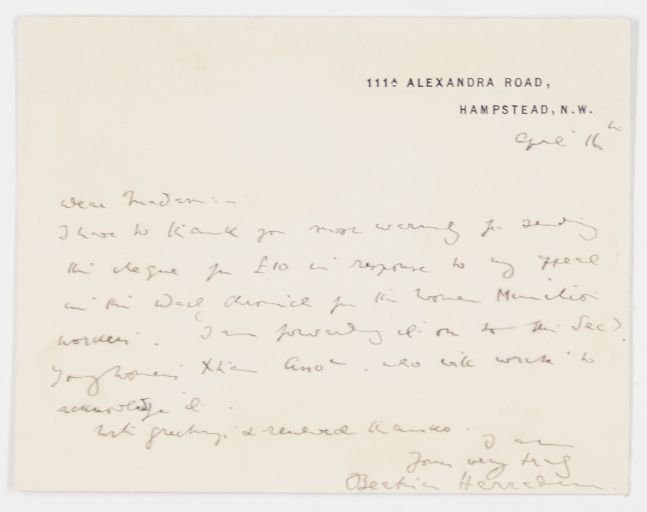 111A ALEXANDRA ROAD,
HAMPSTEAD, N.W.
April 16th
Dear Madam:—
I have to thank you most warmly for sending
this cheque for £10 in response to my appeal
in the Daily Chronicle for the Women Munition
workers. I am forwarding it on to the Secy.
Young Women's Xtian Assocn. who will write to
acknowledge it.
With greetings & renewed thanks.
I am
Yours very truly
Beatrice Harraden.